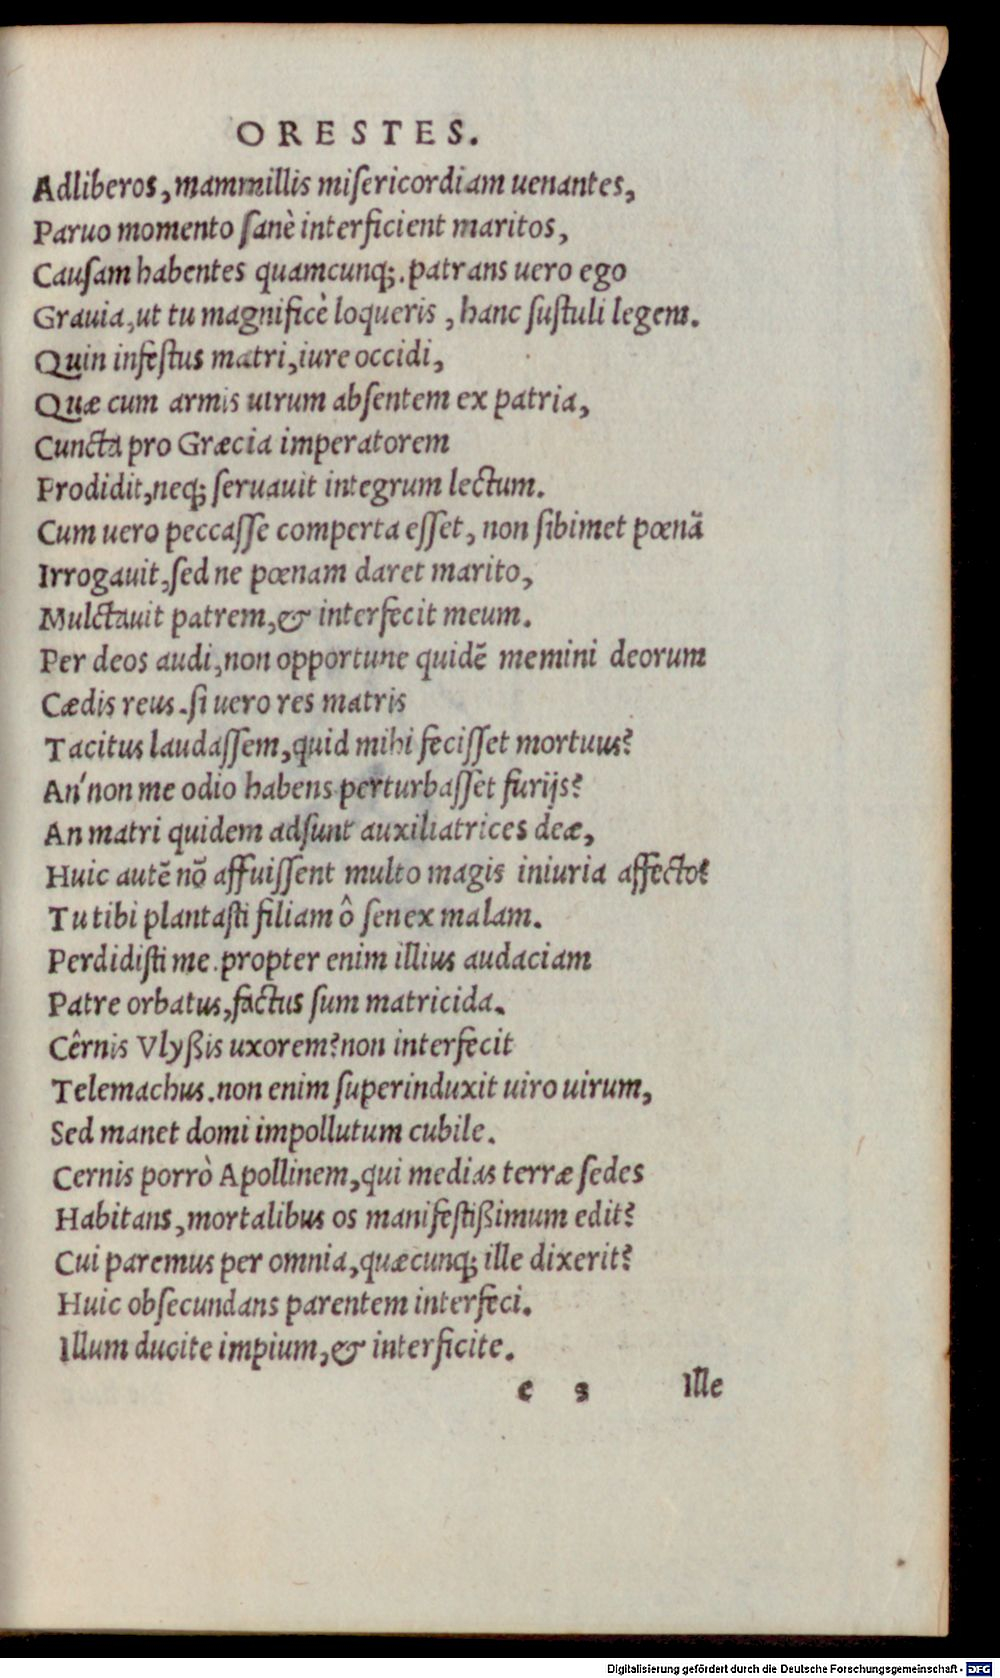 ORESTES.
Adliberos, mammillis miſericordiam uenantes,
Paruo momento ſanè interficient maritos,
Cauſam habentes quamcunq;. patrans uero ego
Grauia, ut tu magnificè loqueris, hanc ſuſtuli legem.
Quin infeſtus matri, iure occidi,
Quæ cum armis uirum abſentem ex patria,
Cuncta pro Græcia imperatorem
Prodidit, neq; ſeruauit integrum lectum.
Cum uero peccaſſe comperta eſſet, non ſibimet pœnã
Irrogauit, ſed ne pœnam daret marito,
Mulctauit patrem, & interfecit meum.
Per deos audi, non opportune quidẽ memini deorum
Cædis reus. ſi uero res matris
Tacitus laudaſſem, quid mihi feciſſet mortuus?
An' non me odio habens perturbaſſet furijs?
An matri quidem adſunt auxiliatrices deæ,
Huic autẽ nõ affuiſſent multo magis iniuria affecto?
Tu tibi plantaſti filiam ô ſenex malam.
Perdidiſti me. propter enim illius audaciam
Patre orbatus, factus ſum matricida.
Cêrnis Vlyßis uxorem? non interfecit
Telemachus. non enim ſuperinduxit uiro uirum,
Sed manet domi impollutum cubile.
Cernis porrò Apollinem, qui medias terræ ſedes
Habitans, mortalibus os manifeſtißimum edit?
Cui paremus per omnia, quæcunq; ille dixerit?
Huic obſecundans parentem interfeci.
Illum ducite impium, & interficite.
e s Ille
Digitalisierung gefördert durch die Deutsche Forschungsgemeinschaft - DFG